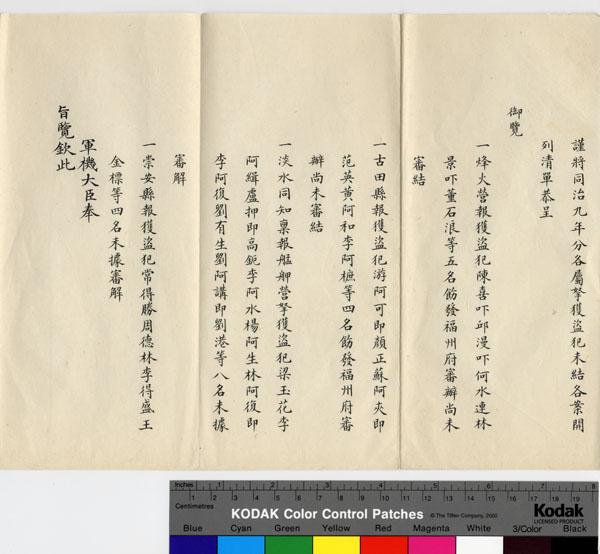 謹將同治九年分各屬拏獲盜犯未結各案開
列清單恭呈
御覽
一烽火營報獲盜犯陳喜吓邱漫吓何水連林
景吓董石浪等五名飭發福州府審辦尚未
審結
一古田縣報獲盜犯游阿可即顏正蘇阿夾即
范英黃阿和李阿樜等四名飭發福州府審
辦尚未審結
一淡水同知稟報艋舺營拏獲盜犯梁玉花李
阿緝盧押即高鉅李阿水楊阿生林阿復即
李阿復劉有生劉阿講即劉港等八名未據
審解
一崇安縣報獲盜犯常得勝周德林李得盛王
金標等四名未據審解
軍機大臣奉
旨覽欽此
Inches 1 2 3 4 5 6 7 8
Centimetres 1 2 3 4 5 6 7 8 9 10 11 12 13 14 15 16 17 18 19
KODAK Color Control Patches © The Tiffen Company, 2000 Kodak
LICENSED PRODUCT
Blue Cyan Green Yellow Red Magenta White 3/Color Black